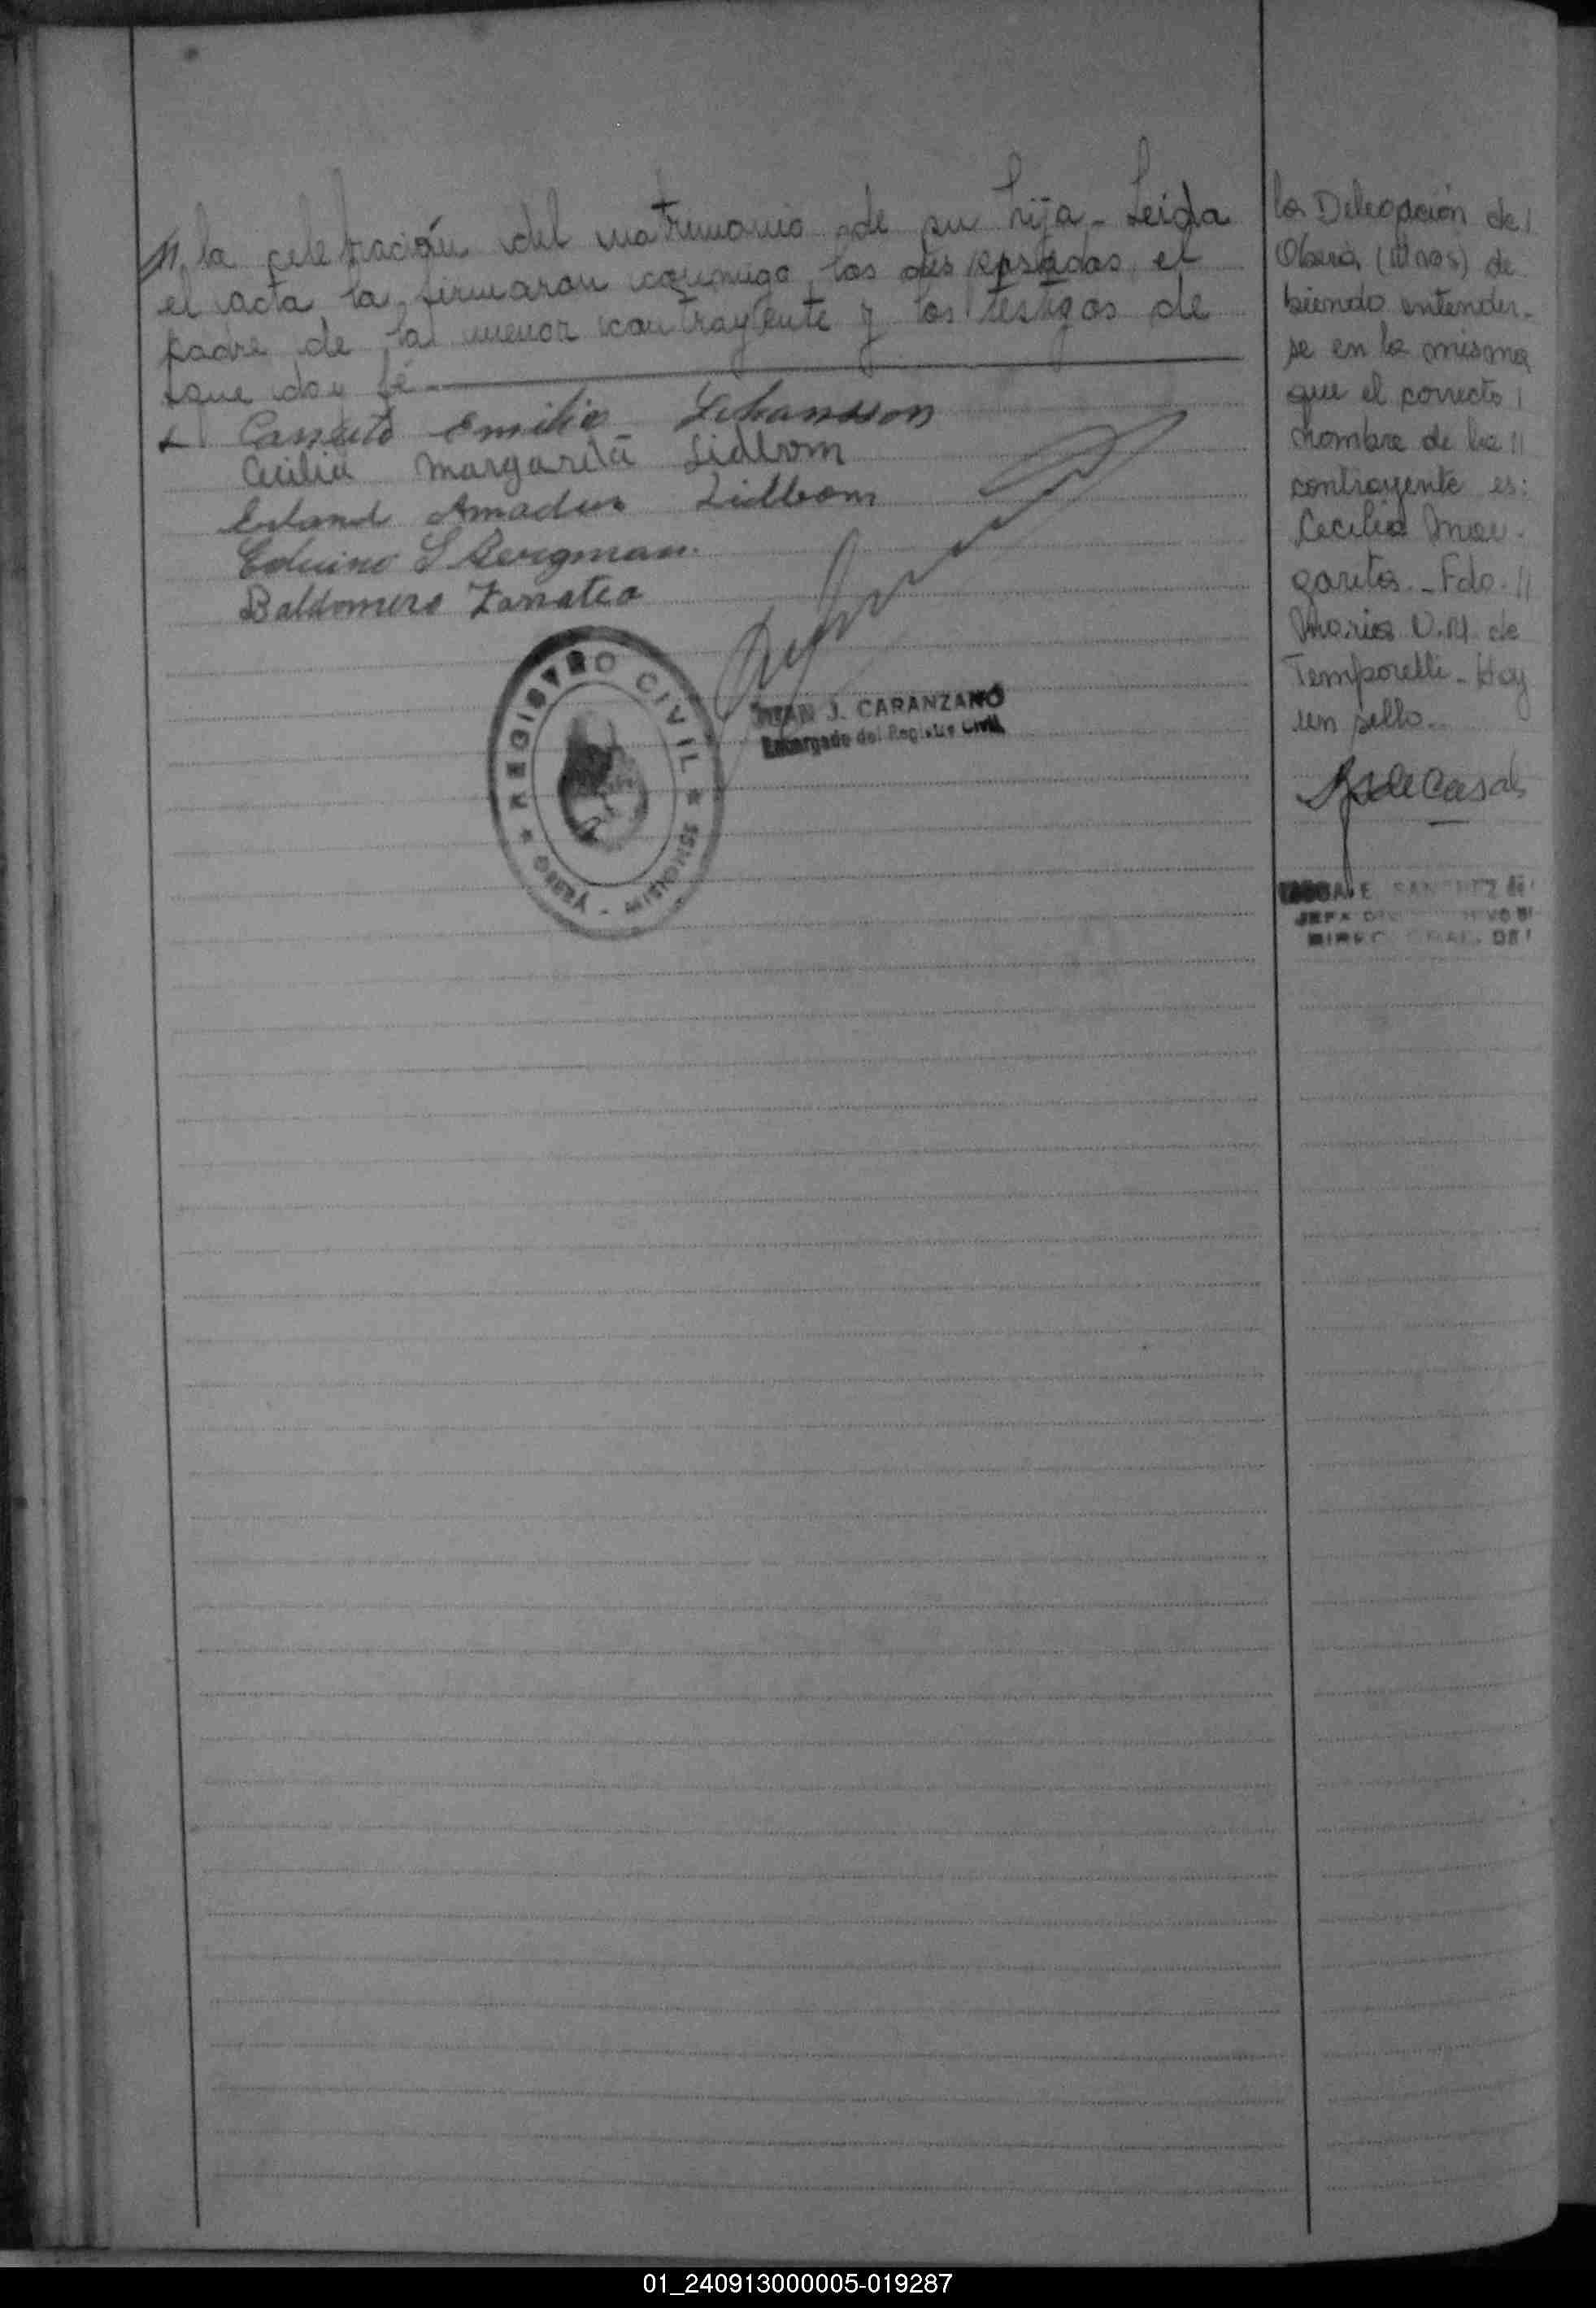 la celebración del matrimonio de su hija - Leida
el acta la firmaron conmigo, los desposados, el
padre de la menor contrayente y los testigos de
que doy fé.
Canuto Emilio Johansson
Cecilia Margarita Lidbom
Erland Amadeus Lidbom
Eduino S Bergman
Baldomero Zarratea
REGISTRO CIVIL
OBERÁ - MISIONES
JUAN J. CARANZANO
Encargado del Registro Civil
la Delegación de
Oberá (Mnes) de
biendo entender-
se en la misma
que el correcto
nombre de la
contrayente es:
Cecilia Mar-
garita. - Fdo.
Maria V.M. de
Temporelli - Hay
un sello.
de Casals
SANCHEZ de
JEFA
01_240913000005-019287